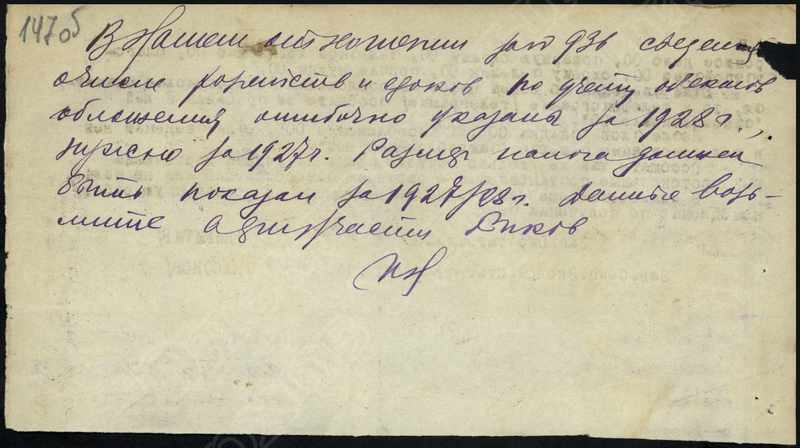 147 об
В нашем отношении за № 936 сведения
о числе хозяйств и едоков по учету объектов
обложения ошибочно указаны за 1928 г.,
нужно за 1927 г. Размер налога должен
быть показан за 1927/28 г. Данные возь-
мите